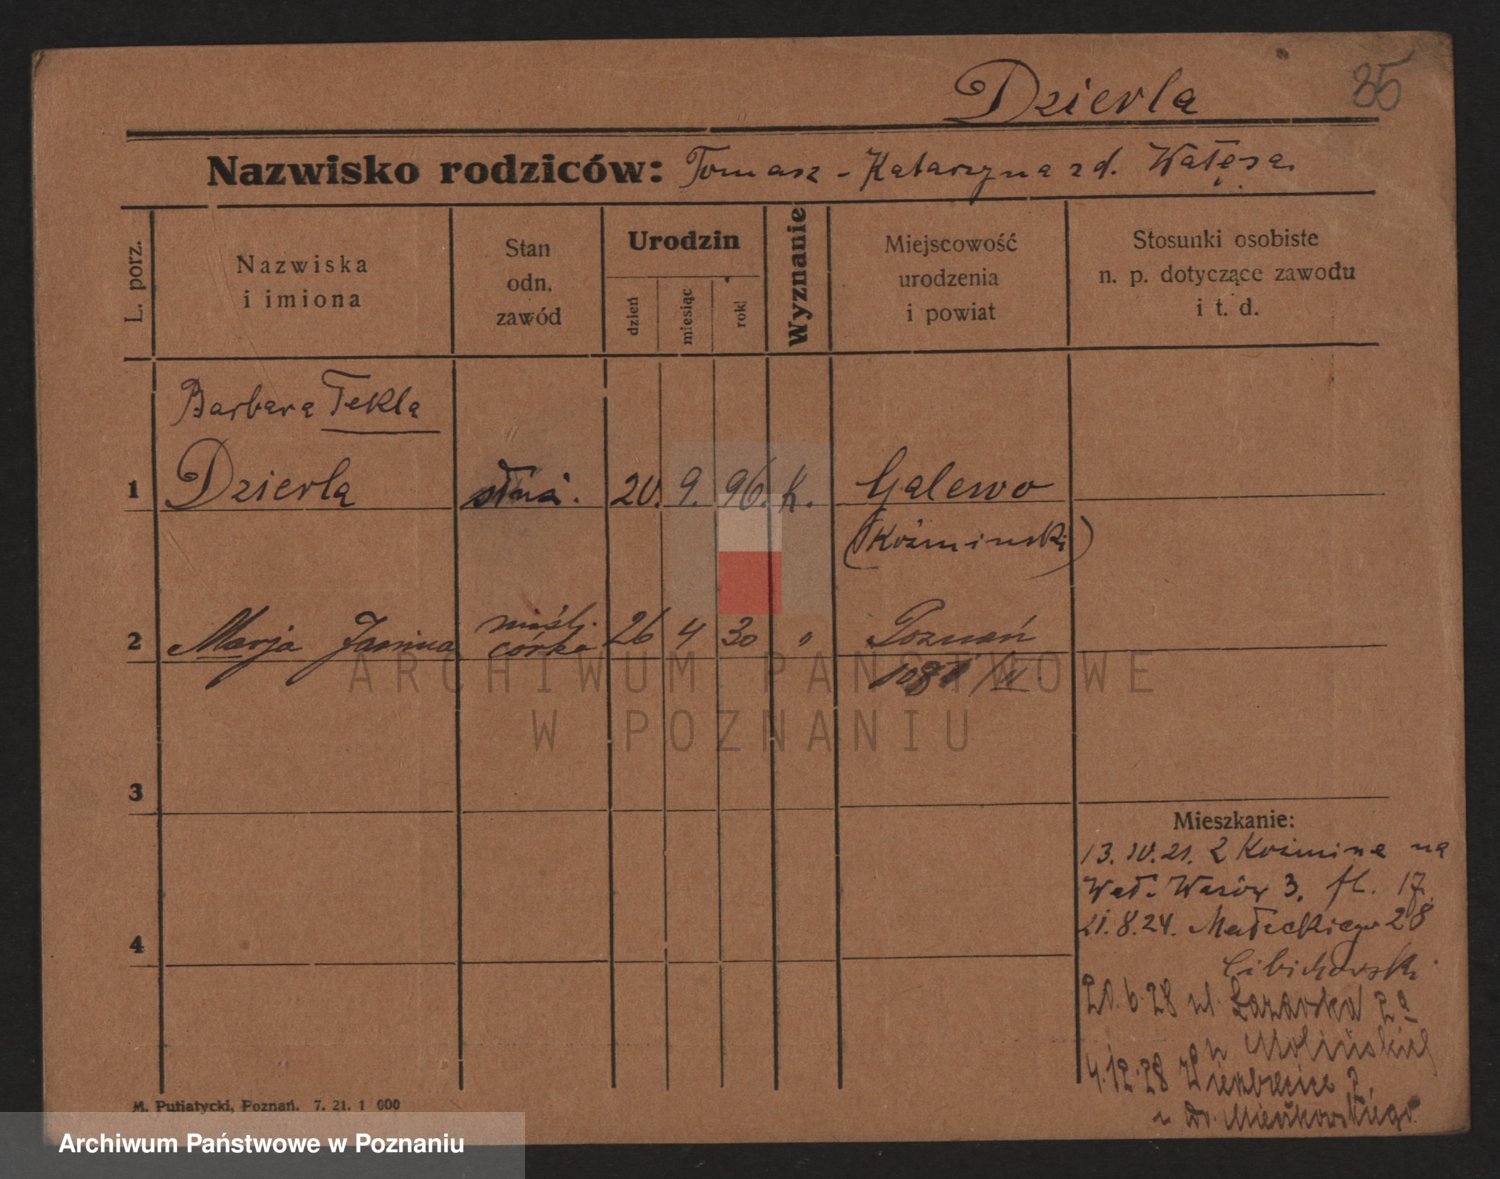 35
Dzierla
Nazwisko rodziców: Tomasz - Katarzyna zd. Wałęsa.
L. porz.
Nazwiska
i imiona
Stan
odn.
zawód
Urodzin
dzień
miesiąc
rok
Wyznanie
Miejscowość
urodzenia
i powiat
Stosunki osobiste
n. p. dotyczące zawodu
i t. d.
Barbara Tekla
1 Dzierla służ. 20. 9. 96. K. Galewo
(Koźminski)
nieśl.
2 Marja Janina córka 26 4 30 " Poznań
3
4
Mieszkanie:
13.10.21. z Koźmina na
Wał. Wazów 3. fl. 17.
21.8.24. Małeckiego 28
Cibichowski
20.6.28 ul. Łazarska 2a
u Molińskiej
4.12.28 Wierzbięcice 2,
u Dr.
M. Putiatycki, Poznań. 7. 21. 1 000
ARCHIWUM PAŃSTWOWE
W POZNANIU
Archiwum Państwowe w Poznaniu